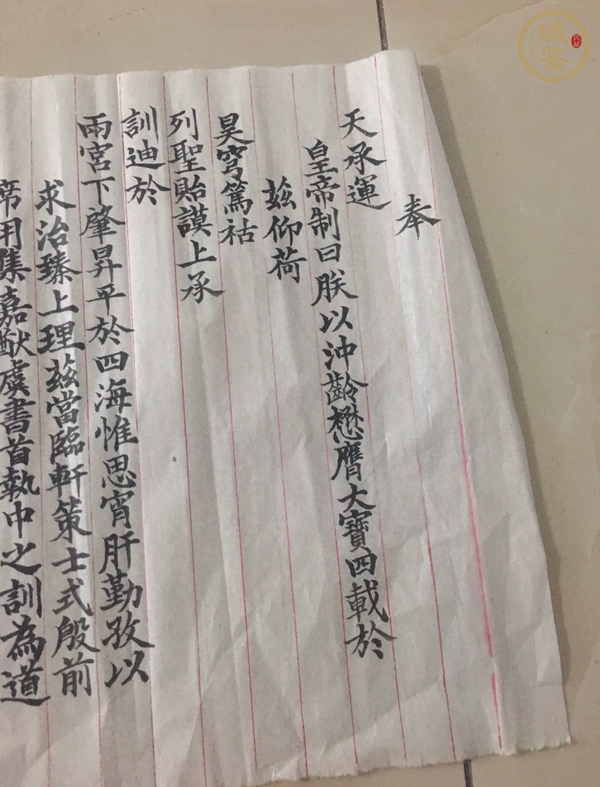 奉
天承運
皇帝制曰朕以沖齡懋膺大寶四載於
茲仰荷
昊穹篤祜
列聖貽謨上承
訓迪於
兩宮下肇昇平於四海惟思宵肝勤孜以
求治臻上理茲當臨軒策士式殷前
席用集嘉猷虞書首執中之訓為道